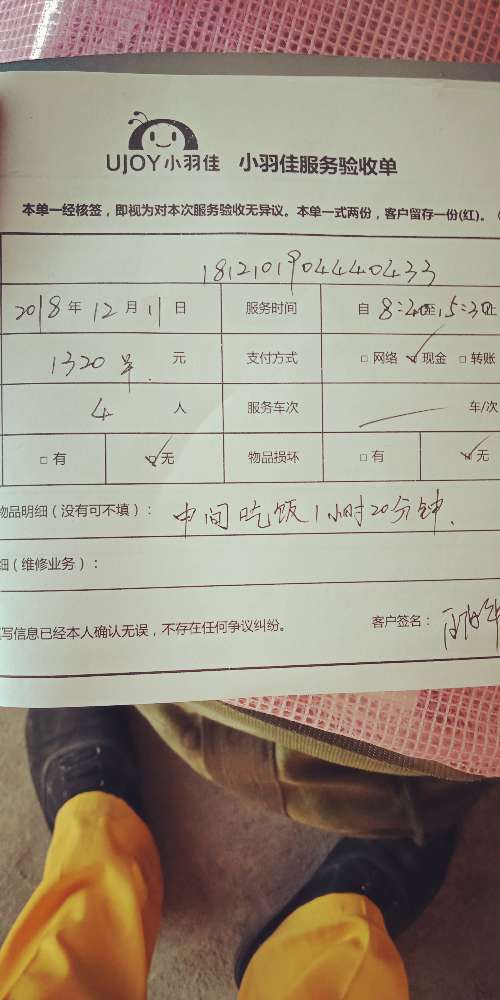 UJOY小羽佳 小羽佳服务验收单
本单一经核签，即视为对本次服务验收无异议。本单一式两份，客户留存一份(红)。
18121019044440433
2018年12月11日 服务时间 自8:40至15:30止
1320 元 支付方式 □网络 ☑现金 □转账
4 人 服务车次 车/次
□有 ☑无 物品损坏 □有 ☑无
物品明细（没有可不填）： 中间吃饭1小时20分钟.
（维修业务）：
写信息已经本人确认无误，不存在任何争议纠纷。 客户签名：